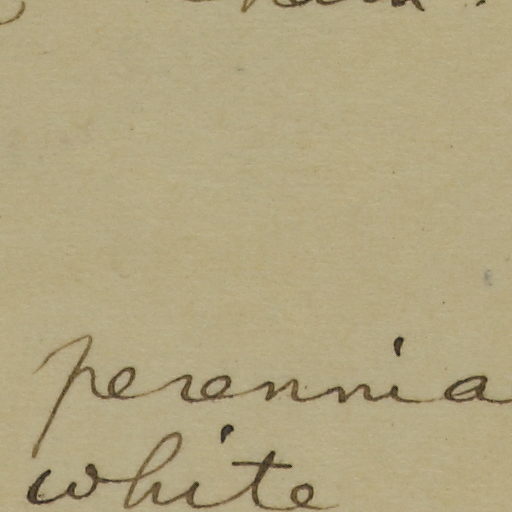 perennia
white